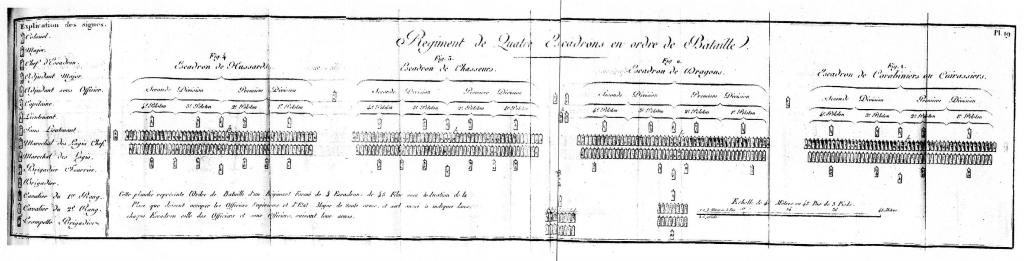 Pl. 19
Regiment de Quatre Escadrons en ordre de Bataille.
Explication des signes.
Colonel.
Major.
Chef d'Escadron.
Adjudant Major.
Adjudant sous Officier.
Capitaine.
Lieutenant.
Sous Lieutenant.
Marechal des Logis Chef.
Marechal des Logis.
Brigadier Fourrier.
Brigadier.
Cavalier du 1er Rang.
Cavalier du 2e Rang.
Trompette Brigadier
Fig. 4
Escadron de Hussards.
Seconde Division Premiere Division
4e Peloton 3e Peloton 2e Peloton 1er Peloton
Fig. 3.
Escadron de Chasseurs.
Seconde Division Premiere Division
4e Peloton 3e Peloton 2e Peloton 1er Peloton
Fig. 2.
Escadron de Dragons.
Seconde Division Premiere Division
4e Peloton 3e Peloton 2e Peloton 1er Peloton
Fig. 1.
Escadron de Carabiniers ou Cuirassiers.
Seconde Division Premiere Division
4e Peloton 3e Peloton 2e Peloton 1er Peloton
Cette planche représente l'Ordre de Bataille d'un Régiment Formé de 4 Escadrons de 48 Files avec indication de la
Place que doivent occuper les Officiers Supérieurs et l'Etat Major de toute arme, et sert aussi à indiquer dans
chaque Escadron celle des Officiers et sous Officiers, suivant leur armes.
Echelle de Mètres ou 48 Pas de 3 Pieds.